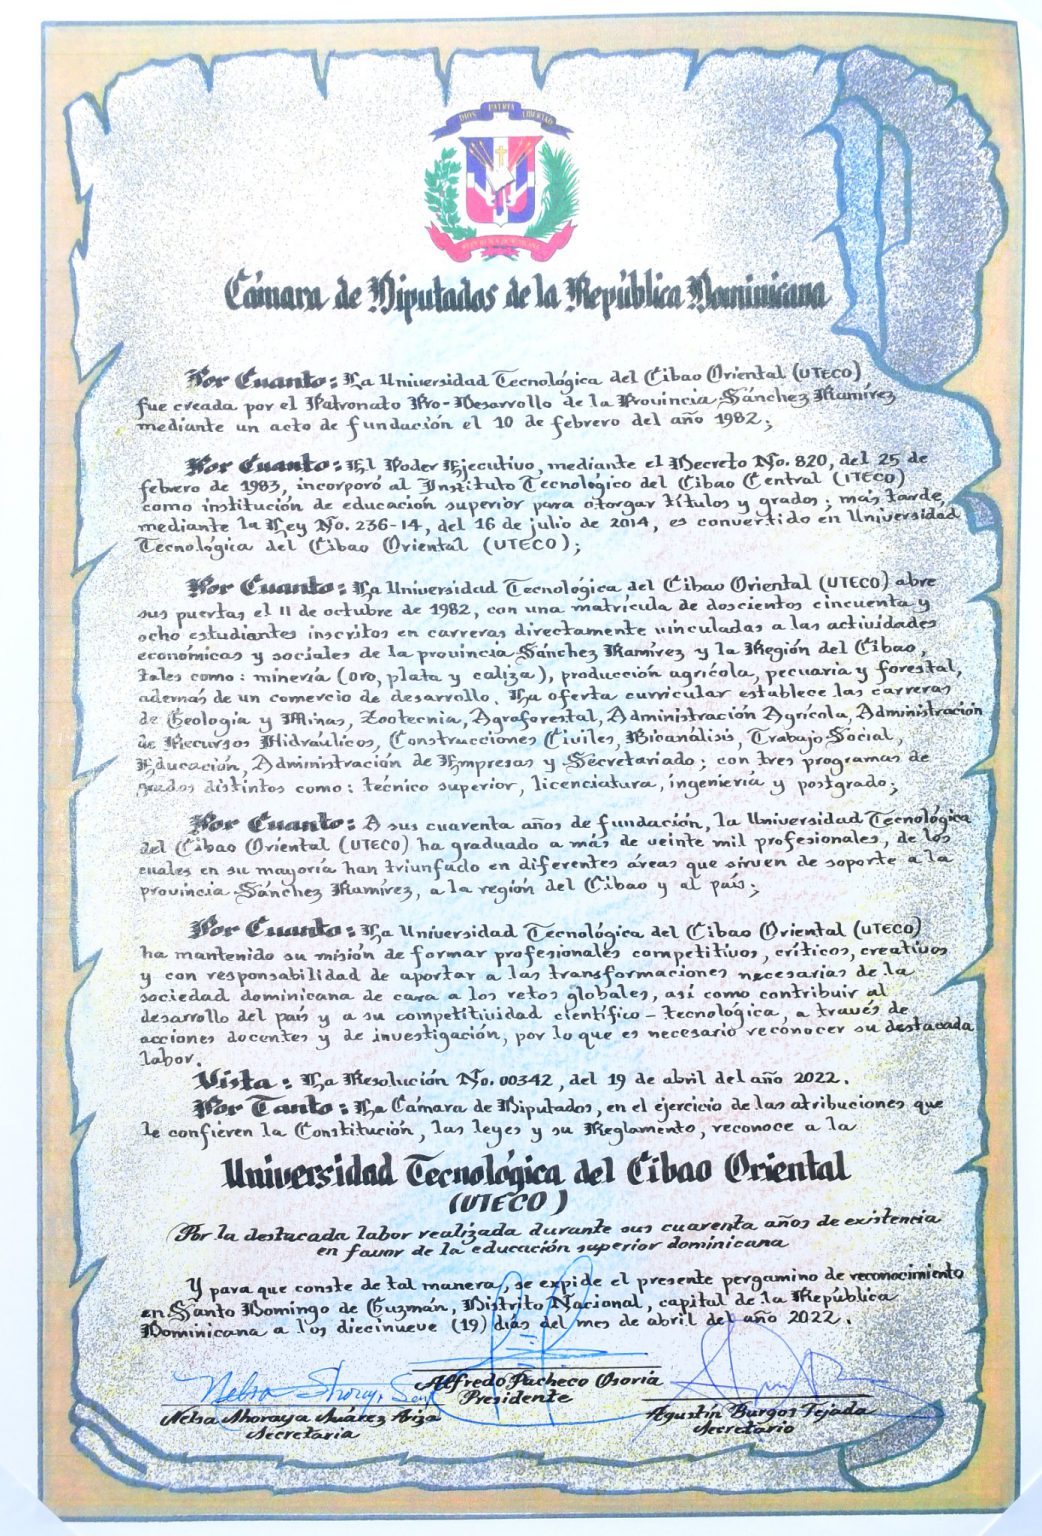 DIOS PATRIA LIBERTAD
REPUBLICA DOMINICANA
Cámara de Diputados de la República Dominicana
Por Cuanto: La Universidad Tecnológica del Cibao Oriental (UTECO)
fue creada por el Patronato Pro-Desarrollo de la Provincia Sánchez Ramírez
mediante un acto de fundación el 10 de febrero del año 1982;
Por Cuanto: El Poder Ejecutivo, mediante el Decreto No. 820, del 25 de
febrero de 1983, incorporó al Instituto Tecnológico del Cibao Central (ITECO)
como institución de educación superior para otorgar títulos y grados; más tarde,
mediante la Ley No. 236-14, del 16 de julio de 2014, es convertido en Universidad
Tecnológica del Cibao Oriental (UTECO);
Por Cuanto: La Universidad Tecnológica del Cibao Oriental (UTECO) abre
sus puertas el 11 de octubre de 1982, con una matrícula de doscientos cincuenta y
ocho estudiantes inscritos en carreras directamente vinculadas a las actividades
económicas y sociales de la provincia Sánchez Ramírez y la Región del Cibao,
tales como: minería (oro, plata y caliza), producción agrícola, pecuaria y forestal,
además de un comercio de desarrollo. La oferta curricular establece las carreras
de Geología y Minas, Zootecnia, Agraforestal, Administración Agrícola, Administración
de Recursos Hidráulicos, Construcciones Civiles, Bioanálisis, Trabajo Social,
Educación, Administración de Empresas y Secretariado; con tres programas de
grados distintos como: técnico superior, licenciatura, ingeniería y postgrado;
Por Cuanto: A sus cuarenta años de fundación, la Universidad Tecnológica
del Cibao Oriental (UTECO) ha graduado a más de veinte mil profesionales, de los
cuales en su mayoría han triunfado en diferentes áreas que sirven de soporte a la
provincia Sánchez Ramírez, a la región del Cibao y al país;
Por Cuanto: La Universidad Tecnológica del Cibao Oriental (UTECO)
ha mantenido su misión de formar profesionales competitivos, críticos, creativos
y con responsabilidad de aportar a las transformaciones necesarias de la
sociedad dominicana de cara a los retos globales, así como contribuir al
desarrollo del país y a su competitividad científico-tecnológica, a través de
acciones docentes y de investigación, por lo que es necesario reconocer su destacada
labor.
Vista: La Resolución No. 00342, del 19 de abril del año 2022.
Por Tanto: La Cámara de Diputados, en el ejercicio de las atribuciones que
le confieren la Constitución, las leyes y su Reglamento, reconoce a la
Universidad Tecnológica del Cibao Oriental
(UTECO)
Por la destacada labor realizada durante sus cuarenta años de existencia
en favor de la educación superior dominicana
Y para que conste de tal manera, se expide el presente pergamino de reconocimiento
en Santo Domingo de Guzmán, Distrito Nacional, capital de la República
Dominicana a los diecinueve (19) días del mes de abril del año 2022.
Alfredo Pacheco Osoria
Presidente
Nelsa Shoraya Suárez Ariza
Secretaria
Agustín Burgos Tejada
Secretario